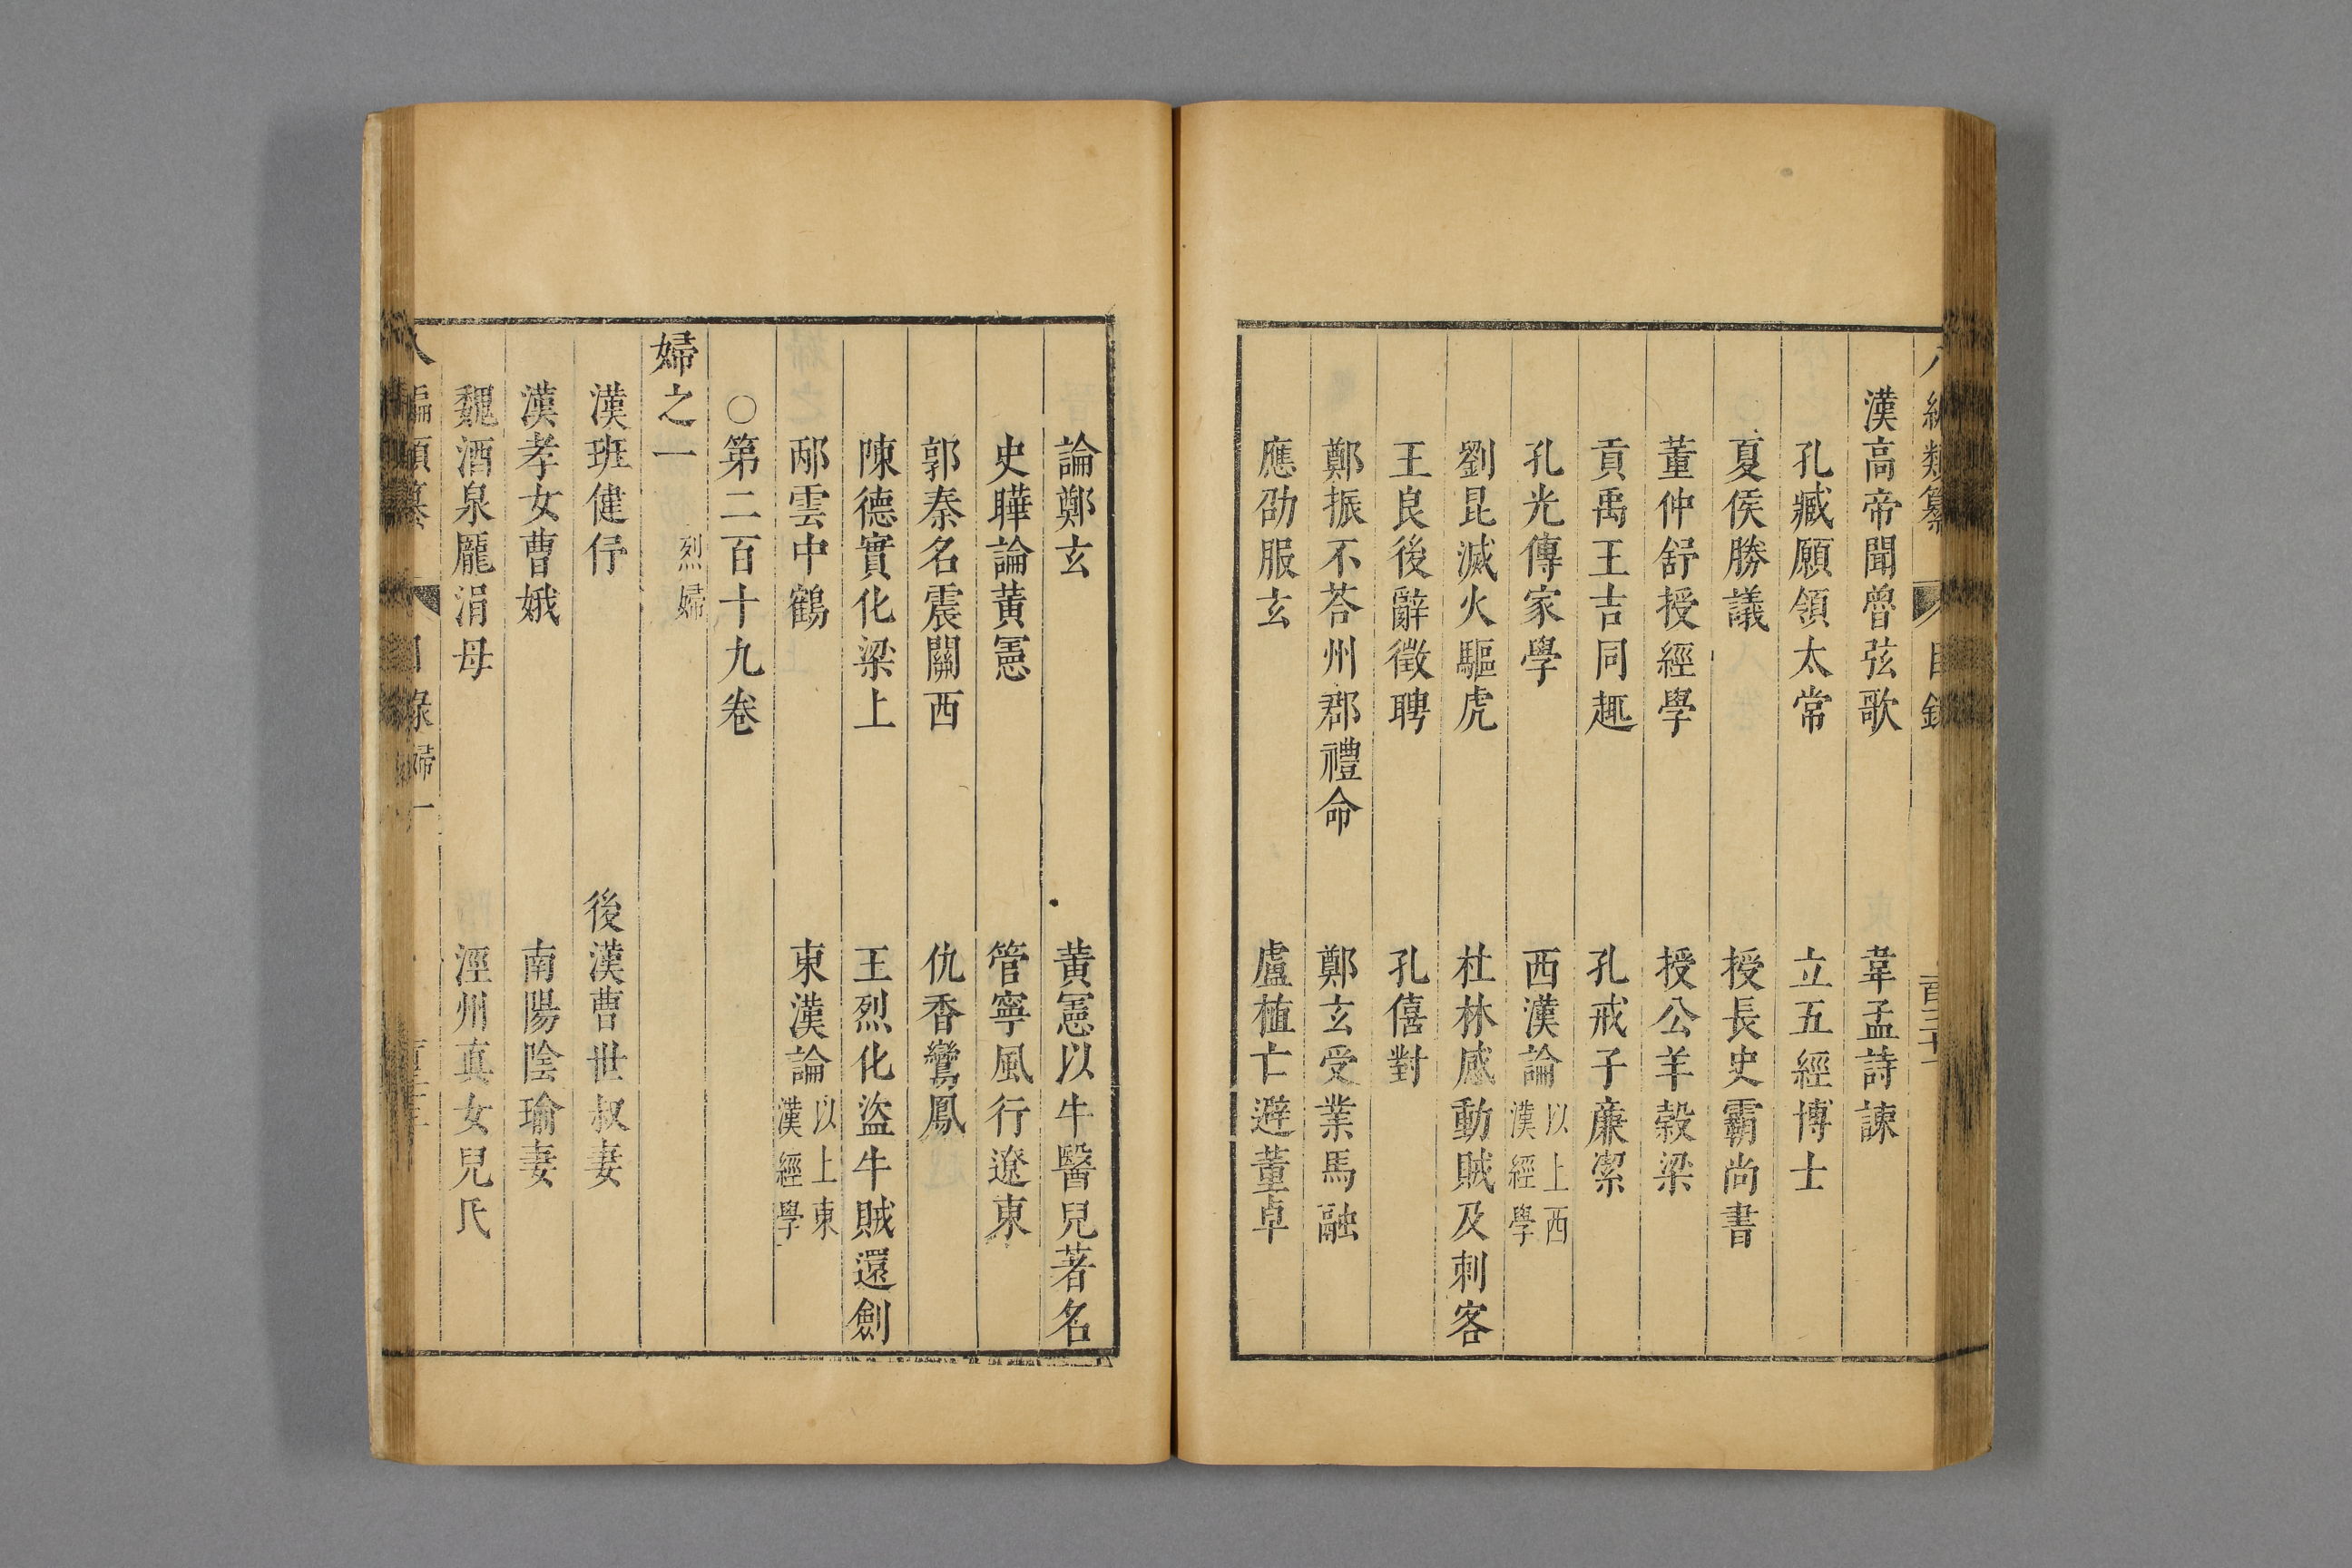 漢高帝聞魯弦歌　韋孟詩諫
孔臧願領太常　立五經博士
夏侯勝議　授長史霸尚書
董仲舒授經學　授公羊穀梁
貢禹王吉同趣　孔戒子廉潔
孔光傳家學　西漢論　以上西漢經學
劉昆滅火驅虎　杜林感動賊及刺客
王良後辭徵聘　孔僖對
鄭振不荅州郡禮命　鄭玄受業馬融
應劭服玄　盧植亡避董卓
論鄭玄　黃憲以牛醫兒著名
史曄論黃憲　管寧風行遼東
郭泰名震關西　仇香鸞鳳
陳德實化梁上　王烈化盜牛賊還劍
邴雲中鶴　東漢論　以上東漢經學
○第二百十九卷
婦之一　烈婦
漢班倢伃　後漢曹世叔妻
漢孝女曹娥　南陽陰瑜妻
魏酒泉龎涓母　涇州真女兒氏